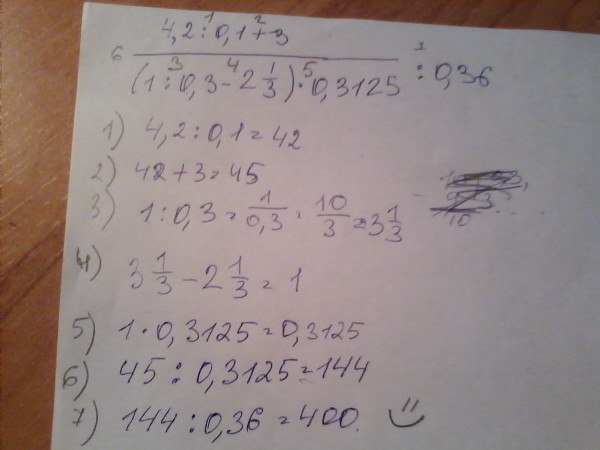 1 2
4,2:0,1+3
6 3 4 5 7
(1:0,3-2 1/3)·0,3125 :0,36
1) 4,2:0,1=42
2) 42+3=45
3) 1:0,3=1/0,3=10/3=3 1/3
4) 3 1/3-2 1/3=1
5) 1·0,3125=0,3125
6) 45:0,3125=144
7) 144:0,36=400.